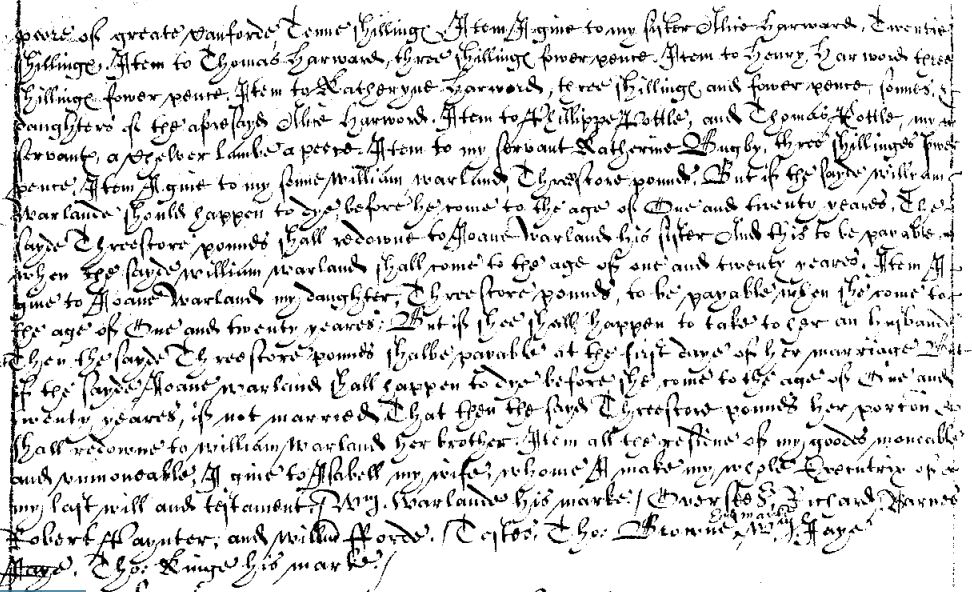 poore of greate Canforde, Tenne shillings Item I give to my sister Alice Harward, Twentie
shillings, Item to Thomas Harward, three shillings fower pence. Item to Henry Harword three
shillings fower pence, Item to Katheryne Harword, three shillings and fower pence, sonnes,
daughters of the aforesayd Alice Harword. Item to Phillippe Pottle, and Thomas Pottle, my
servants, a Chelver lambe a peece. Item to my servant Katherine Bugby, three shillinges fower
pence, Item I give to my sonne William Warland, Threescore pounds, But if the sayde William
Warlande should happen to dye before he come to the age of One and twenty yeares, The
sayde Threescore pounds shall redowne to Joane Warland his sister And this to be payable
when the sayde William Warland shall come to the age of one and twenty yeares, Item I
give to Joane Warland my daughter, Threescore pounds, to be payable when she come to
the age of One and twenty yeares, But if shee shall happen to take to her an husband
Then the sayde Threescore pounds shalbe payable at the first daye of her marriage But
if the sayde Joane Warland shall happen to dye before she come to the age of One and
twenty yeares, if not married, That then the sayd Threescore pounds her porcon
shall redowne to William Warland her brother. Item all the residue of my goodes moveable
and unmoveable, I give to Isabell my wife, whome I make my whole Executrix of
my last will and testament, Wm. Warlande his marke / Overseers, Richard Barnes
Robert Paynter, and Willm fforde, / Testes, Tho: Browne, his marke Jaye
Jaye, Tho: Kinge his marke /